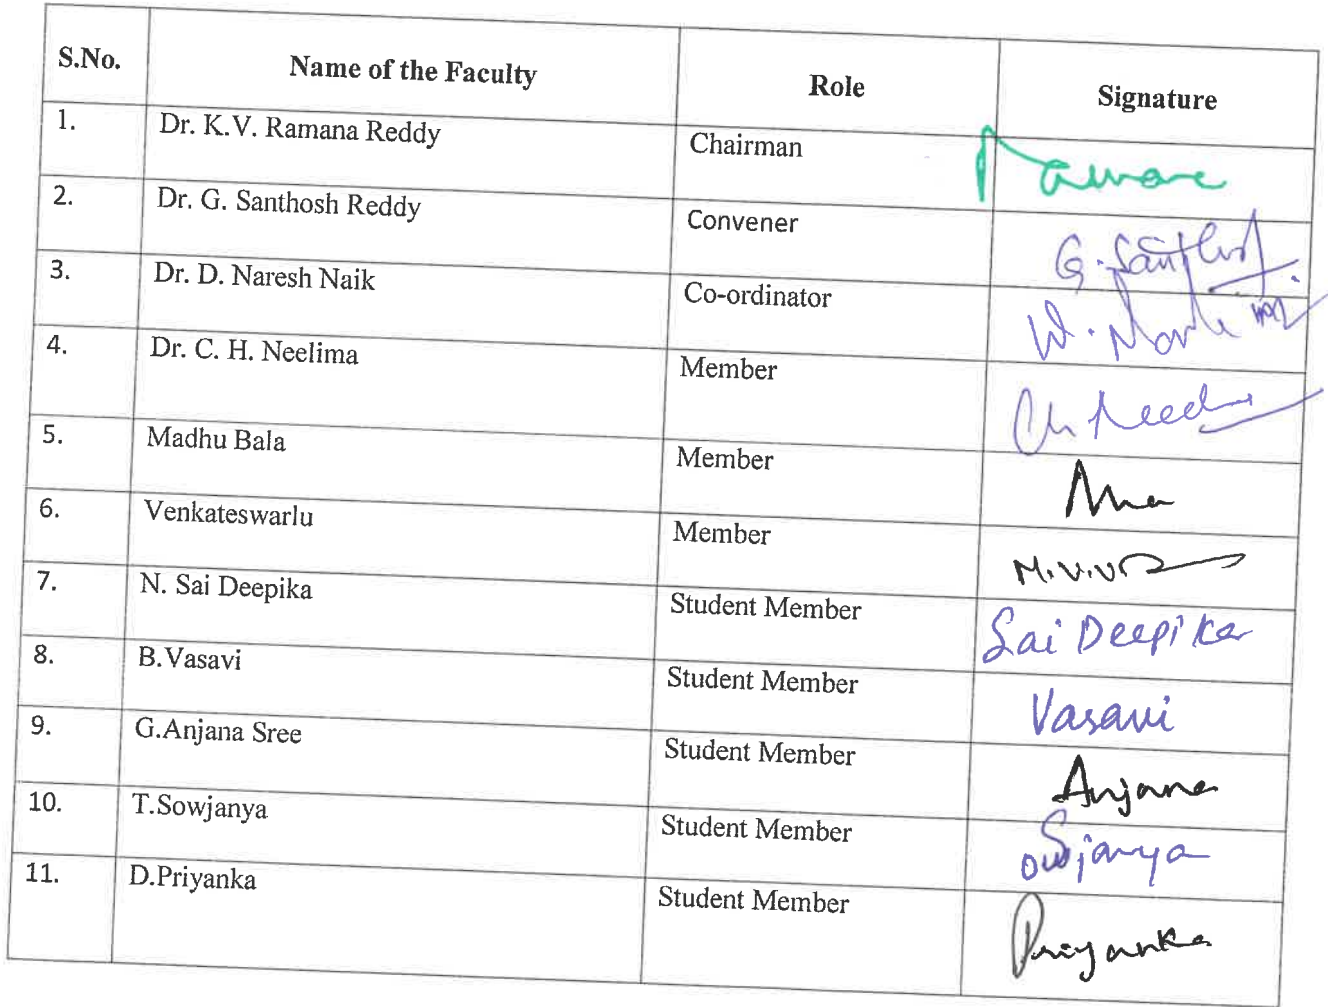 S.No. Name of the Faculty Role Signature
1. Dr. K.V. Ramana Reddy Chairman
2. Dr. G. Santhosh Reddy Convener G. Santhosh
3. Dr. D. Naresh Naik Co-ordinator
4. Dr. C. H. Neelima Member
5. Madhu Bala Member
6. Venkateswarlu Member
7. N. Sai Deepika Student Member Sai Deepika
8. B.Vasavi Student Member Vasavi
9. G.Anjana Sree Student Member Anjana
10. T.Sowjanya Student Member Sowjanya
11. D.Priyanka Student Member Priyanka